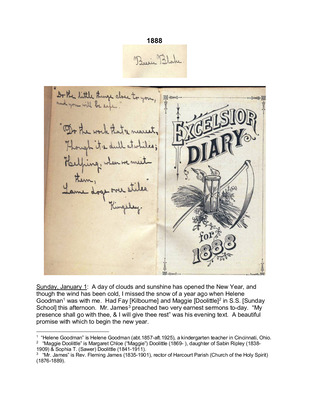 1888
"Bessie" Blake
Do the little things close to you,
and you will be safe."
"Do the work that's nearest,
Though it's dull at whiles;
Helping, when we meet
them,
Lame dogs over stiles.
Kingsley.
EXCELSIOR
DIARY
for
1888
Sunday, January 1: A day of clouds and sunshine has opened the New Year, and
though the wind has been cold, I missed the snow of a year ago when Helene
Goodman¹ was with me. Had Fay [Kilbourne] and Maggie [Doolittle]² in S.S. [Sunday
School] this afternoon. Mr. James³ preached two very earnest sermons to-day. "My
presence shall go with thee, & I will give thee rest" was his evening text. A beautiful
promise with which to begin the new year.
¹ "Helene Goodman" is Helene Goodman (abt.1857-aft.1925), a kindergarten teacher in Cincinnati, Ohio.
² "Maggie Doolittle" is Margaret Chloe ("Maggie") Doolittle (1869- ), daughter of Sabin Ripley (1838-
1909) & Sophia T. (Sawer) Doolittle (1841-1911).
³ "Mr. James" is Rev. Fleming James (1835-1901), rector of Harcourt Parish (Church of the Holy Spirit)
(1876-1889).